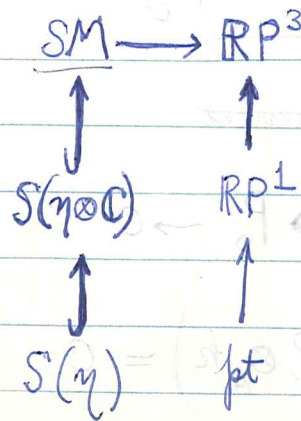 SM → ℝP³
S(η⊗ℂ) ℝP¹
S(η) pt